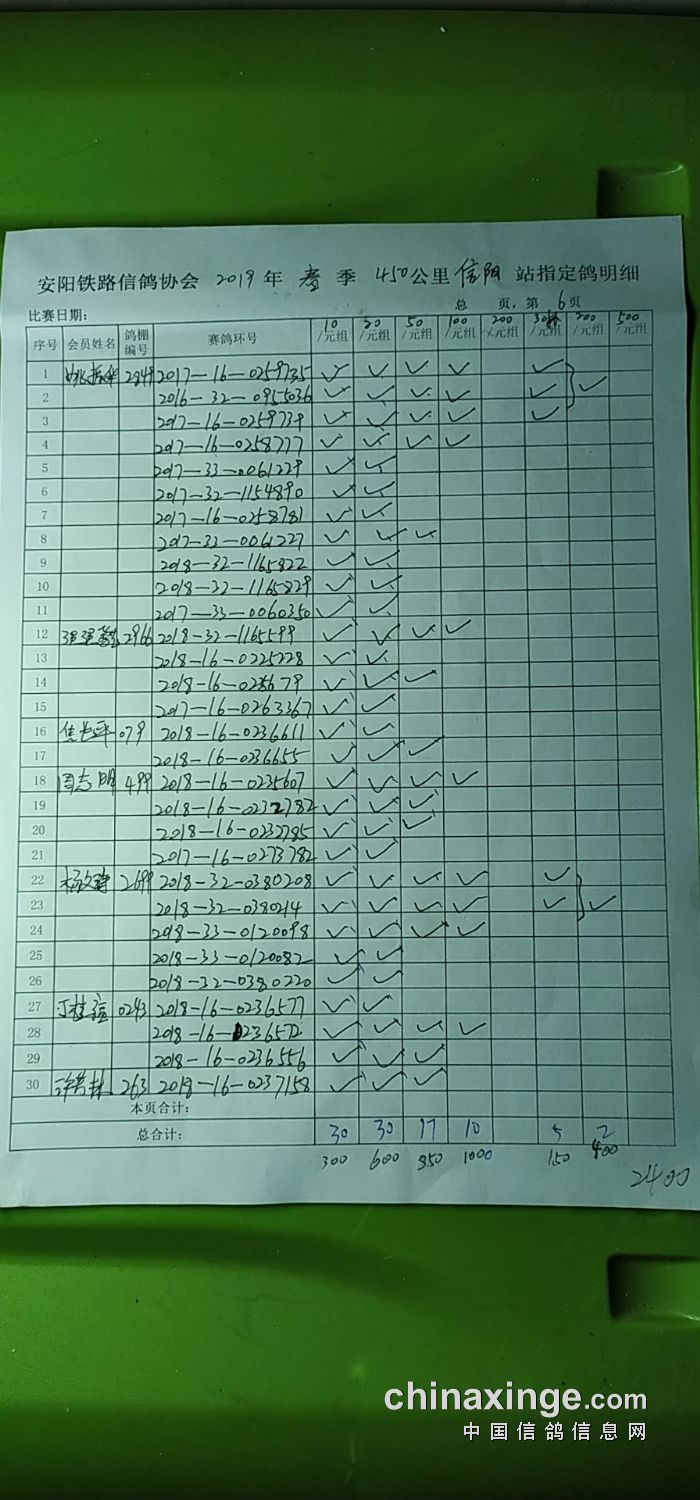 安阳铁路信鸽协会 2019 年 春 季 450公里 信阳 站指定鸽明细
比赛日期: 总 页,第 6 页
序号 会员姓名 鸽棚编号 赛鸽环号 10/元组 20/元组 50/元组 100/元组 200/元组 30/元组 200/元组 500/元组
1 2849 2017-16-0259735 ✓ ✓ ✓ ✓ ✓
2 2016-32-0955036 ✓ ✓ ✓ ✓ ✓ ✓
3 2017-16-0259739 ✓ ✓ ✓ ✓ ✓
4 2017-16-0258777 ✓ ✓ ✓ ✓
5 2017-33-0061229 ✓ ✓
6 2017-32-1154890 ✓ ✓
7 2017-16-0258781 ✓ ✓
8 2017-33-0061227 ✓ ✓ ✓
9 2018-32-1165822 ✓ ✓
10 2018-32-1165829 ✓ ✓
11 2017-33-0060350 ✓ ✓
12 2966 2018-32-1165599 ✓ ✓ ✓ ✓
13 2018-16-0225228 ✓ ✓
14 2018-16-023679 ✓ ✓ ✓
15 2017-16-0263367 ✓ ✓
16 079 2018-16-0236611 ✓ ✓
17 2018-16-0236655 ✓ ✓ ✓
18 周志明 499 2018-16-0235607 ✓ ✓ ✓ ✓
19 2018-16-0232782 ✓ ✓ ✓
20 2018-16-0232785 ✓ ✓ ✓
21 2017-16-0273782 ✓ ✓
22 2699 2018-32-0380208 ✓ ✓ ✓ ✓ ✓
23 2018-32-0380214 ✓ ✓ ✓ ✓ ✓ ✓
24 2018-33-0120098 ✓ ✓ ✓ ✓
25 2018-33-0120082 ✓ ✓
26 2018-32-0380220 ✓ ✓
27 0243 2018-16-0236577 ✓ ✓
28 2018-16-0236572 ✓ ✓ ✓ ✓
29 2018-16-0236556 ✓ ✓ ✓
30 263 2018-16-0237158 ✓ ✓ ✓
本页合计:
总合计: 30 30 17 10 5 2
300 600 850 1000 150 400
2400
chinaxinge.com
中国信鸽信息网